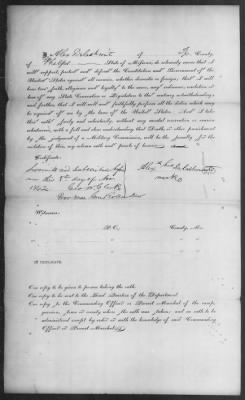 I, Alex of County
of Phelps State of Missouri, do solemnly swear that I
will support, protect and defend the Constitution and Government of the
United States against all enemies, whether domestic or foreign; that I will
bear true faith, allegiance and loyalty to the same, any ordinance, resolution or
law of any State Convention or Legislature to the contrary notwithstanding;
and further, that I will well and faithfully perform all the duties which may
be required of me by the laws of the United States. And I take
this oath freely and voluntarily, without any mental reservation or evasion
whatsoever, with a full and clear understanding that Death, or other punishment
by the judgment of a Military Commission, will be the penalty for the
violation of this, my solemn oath and parole of honor.
Certificate:
Sworn to and subscribed before Alex X
me this 8th day of Nov mark
1862 Geo
Witnesses:
P. O. County, Mo.
IN DUPLICATE.
One copy to be given to person taking the oath.
One copy to be sent to the Head Quarters of the Department.
One copy to the Commanding Officer or Provost Marshal of the company,
town or county where the oath was taken; and no oath to be
administered except by or with the knowledge of said Commanding
Officer or Provost Marshal.